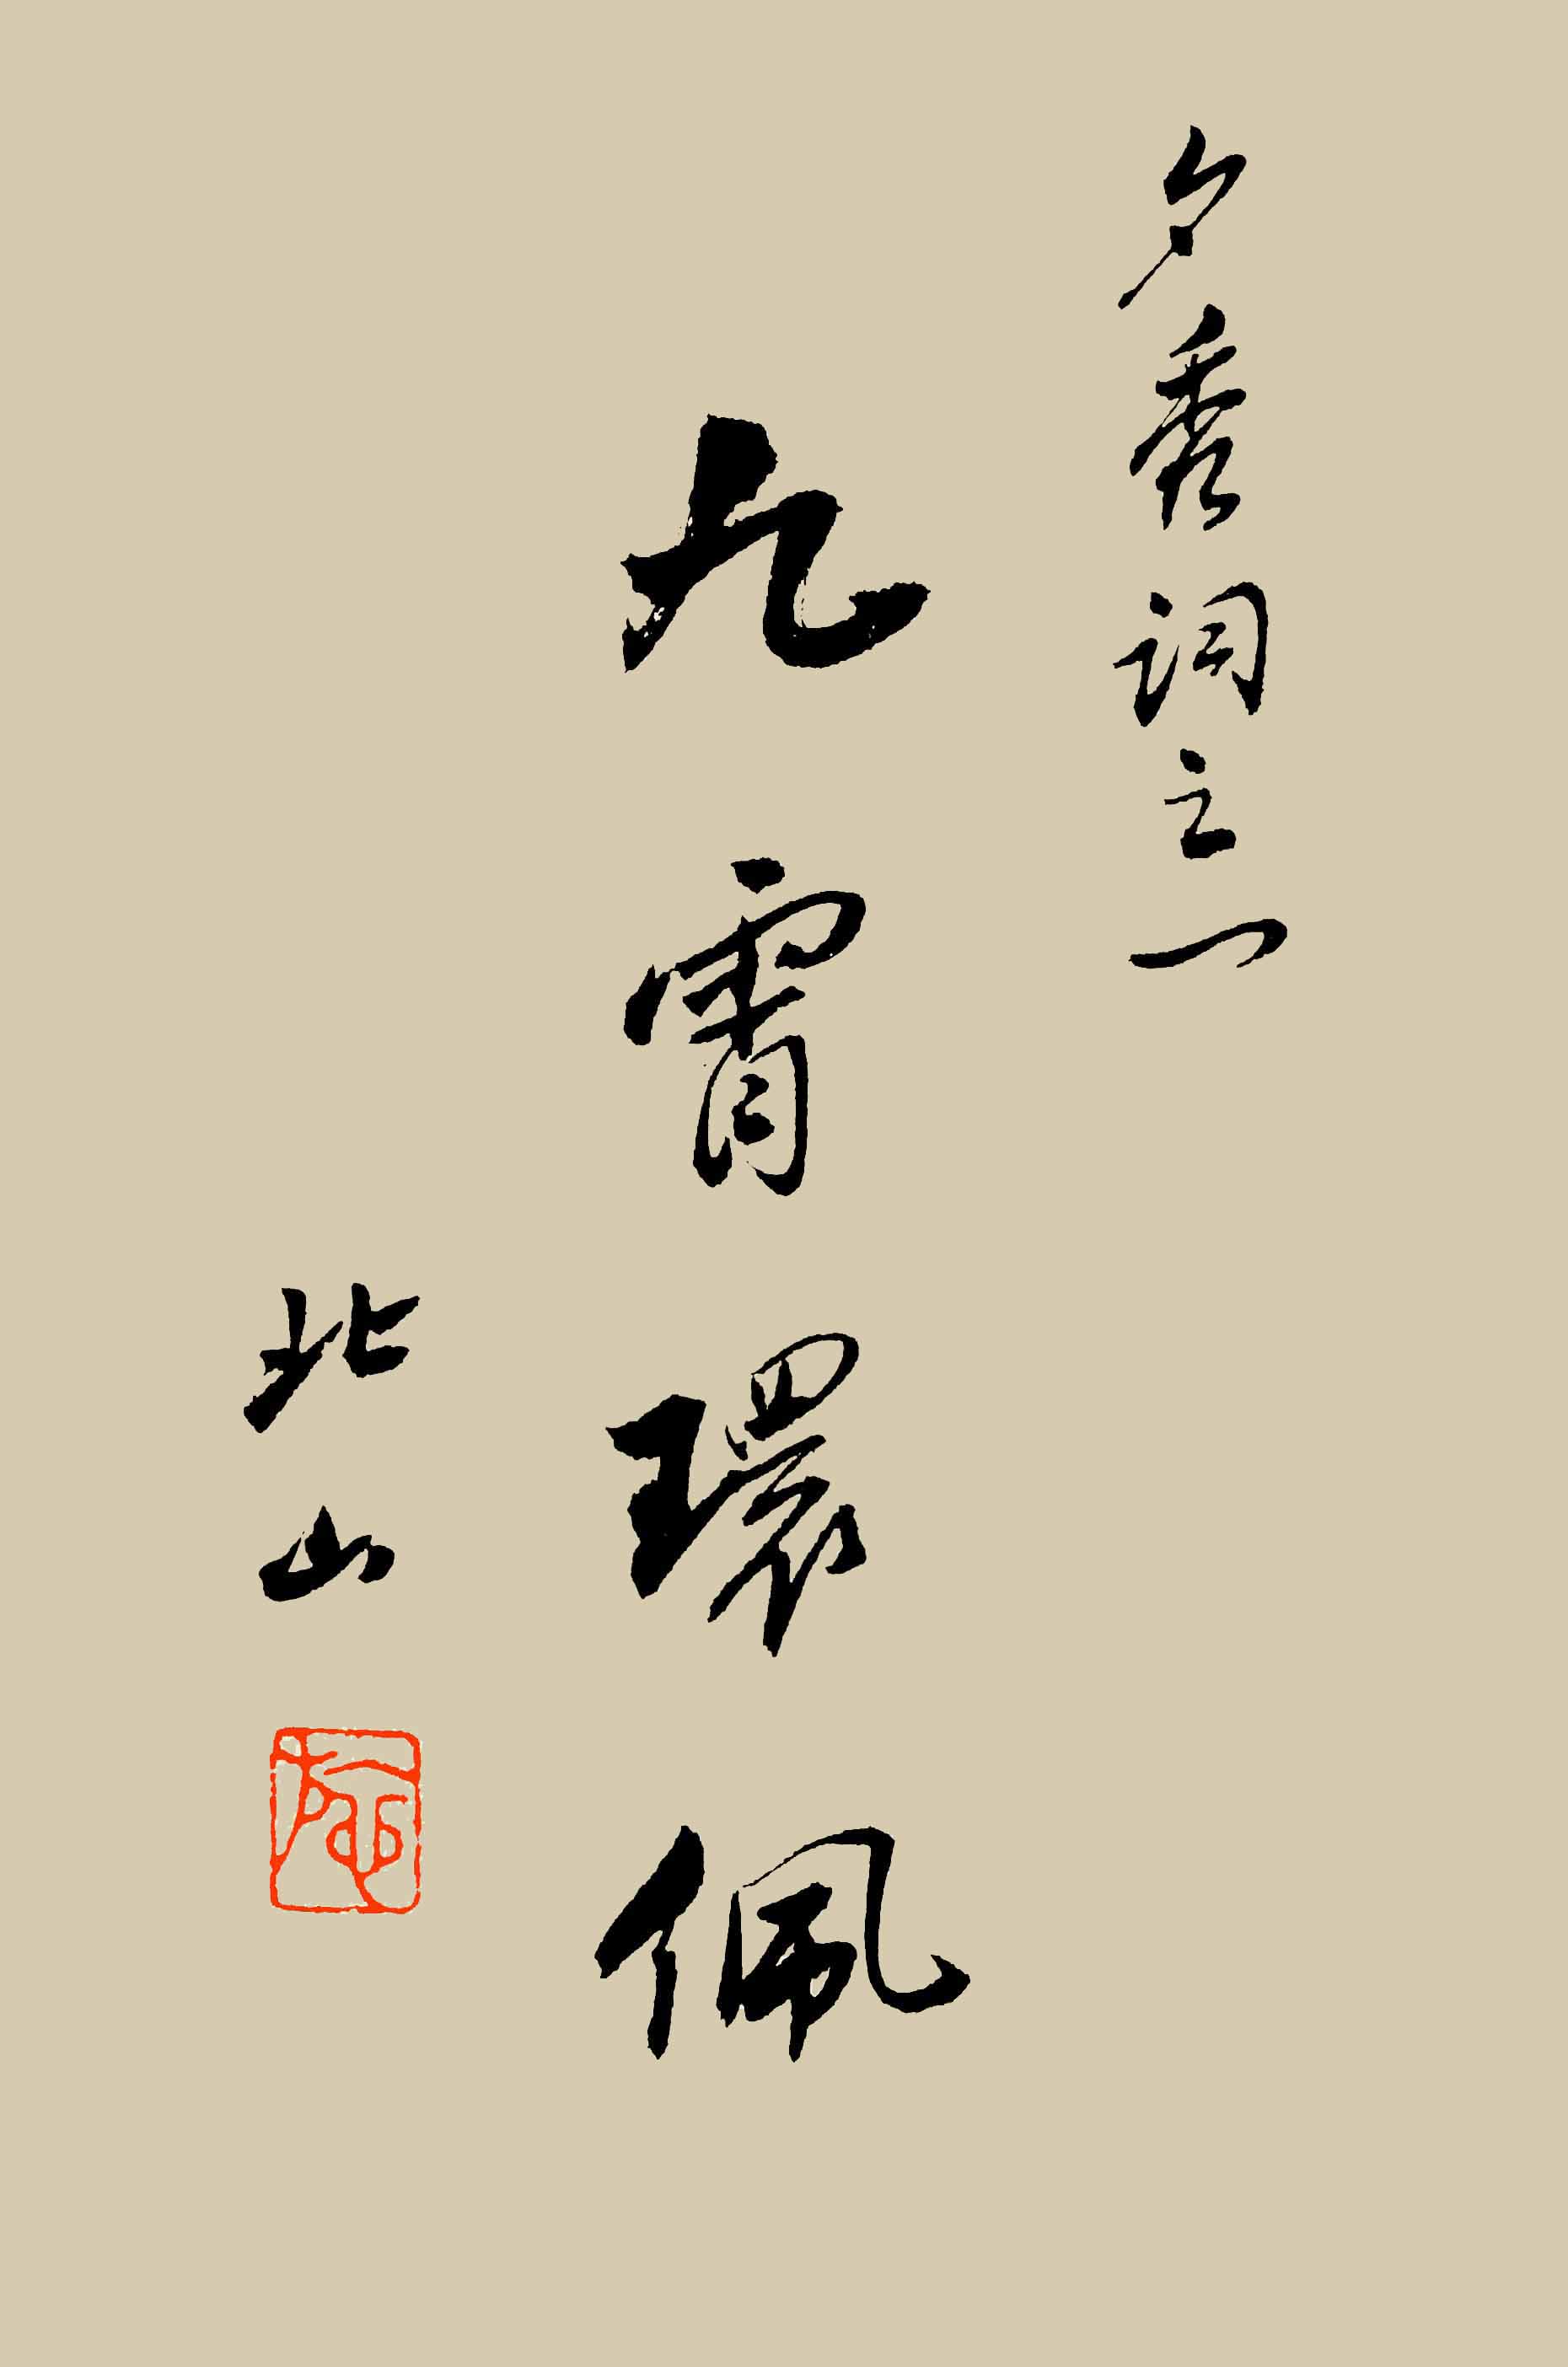 夕秀词之一
九霄環佩
北山